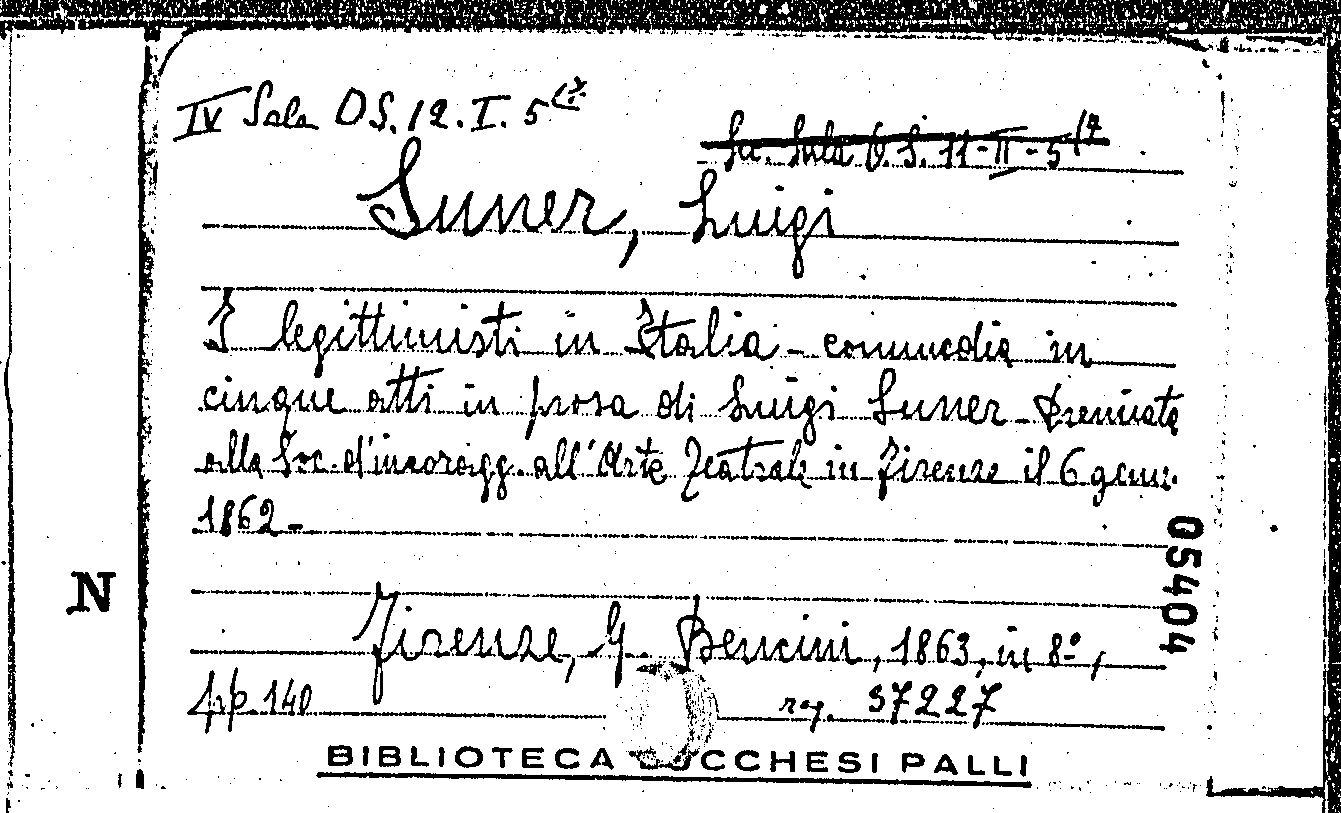 IV Sala O.S. 12. I. 5
Sala O. S. 11-II-5
Suner, Luigi
I legittimisti in Italia - commedia in
cinque atti in prosa di Luigi Suner - Premiata
alla Soc. d'incoragg. all'Arte Teatrale in Firenze il 6 genn.
1862 -
05404
N
Firenze, G. Bencini, 1863, in 8º,
pp. 140 reg. 37227
BIBLIOTECA LUCCHESI PALLI